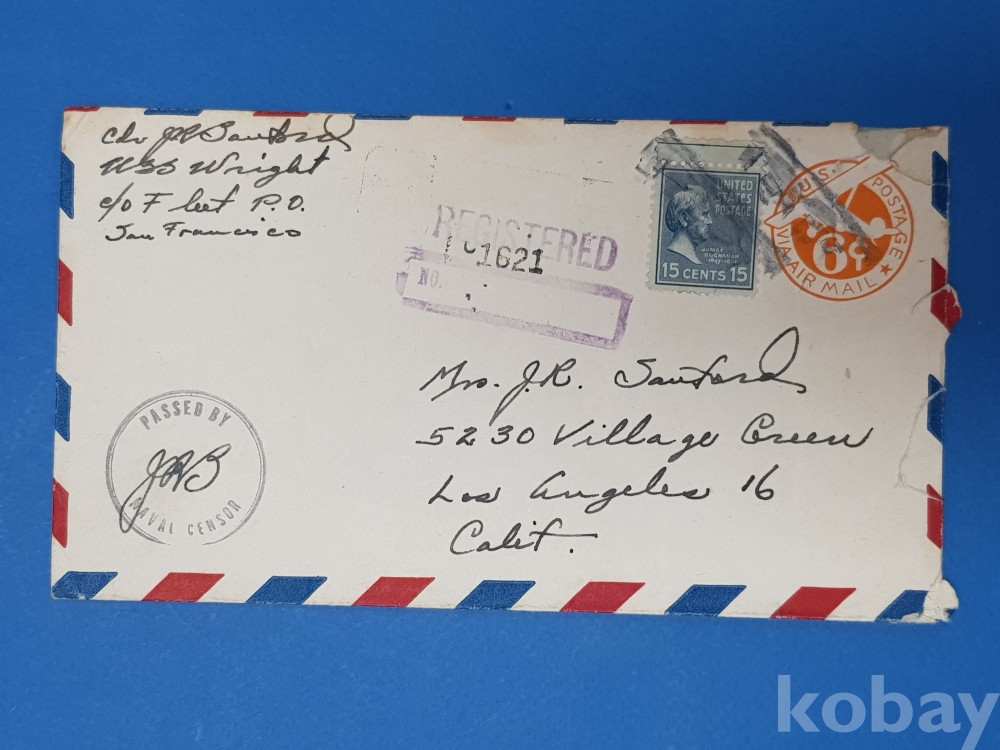 Cdr J R Sanford
USS Wright
c/o Fleet P.O.
San Francisco
REGISTERED
1621
NO.
UNITED
STATES
POSTAGE
JAMES
BUCHANAN
15 CENTS 15
U.S. POSTAGE
6¢
VIA AIR MAIL
Mrs. J.R. Sanford
5230 Village Green
Los Angeles 16
Calif.
PASSED BY
JRS
NAVAL CENSOR
kobay